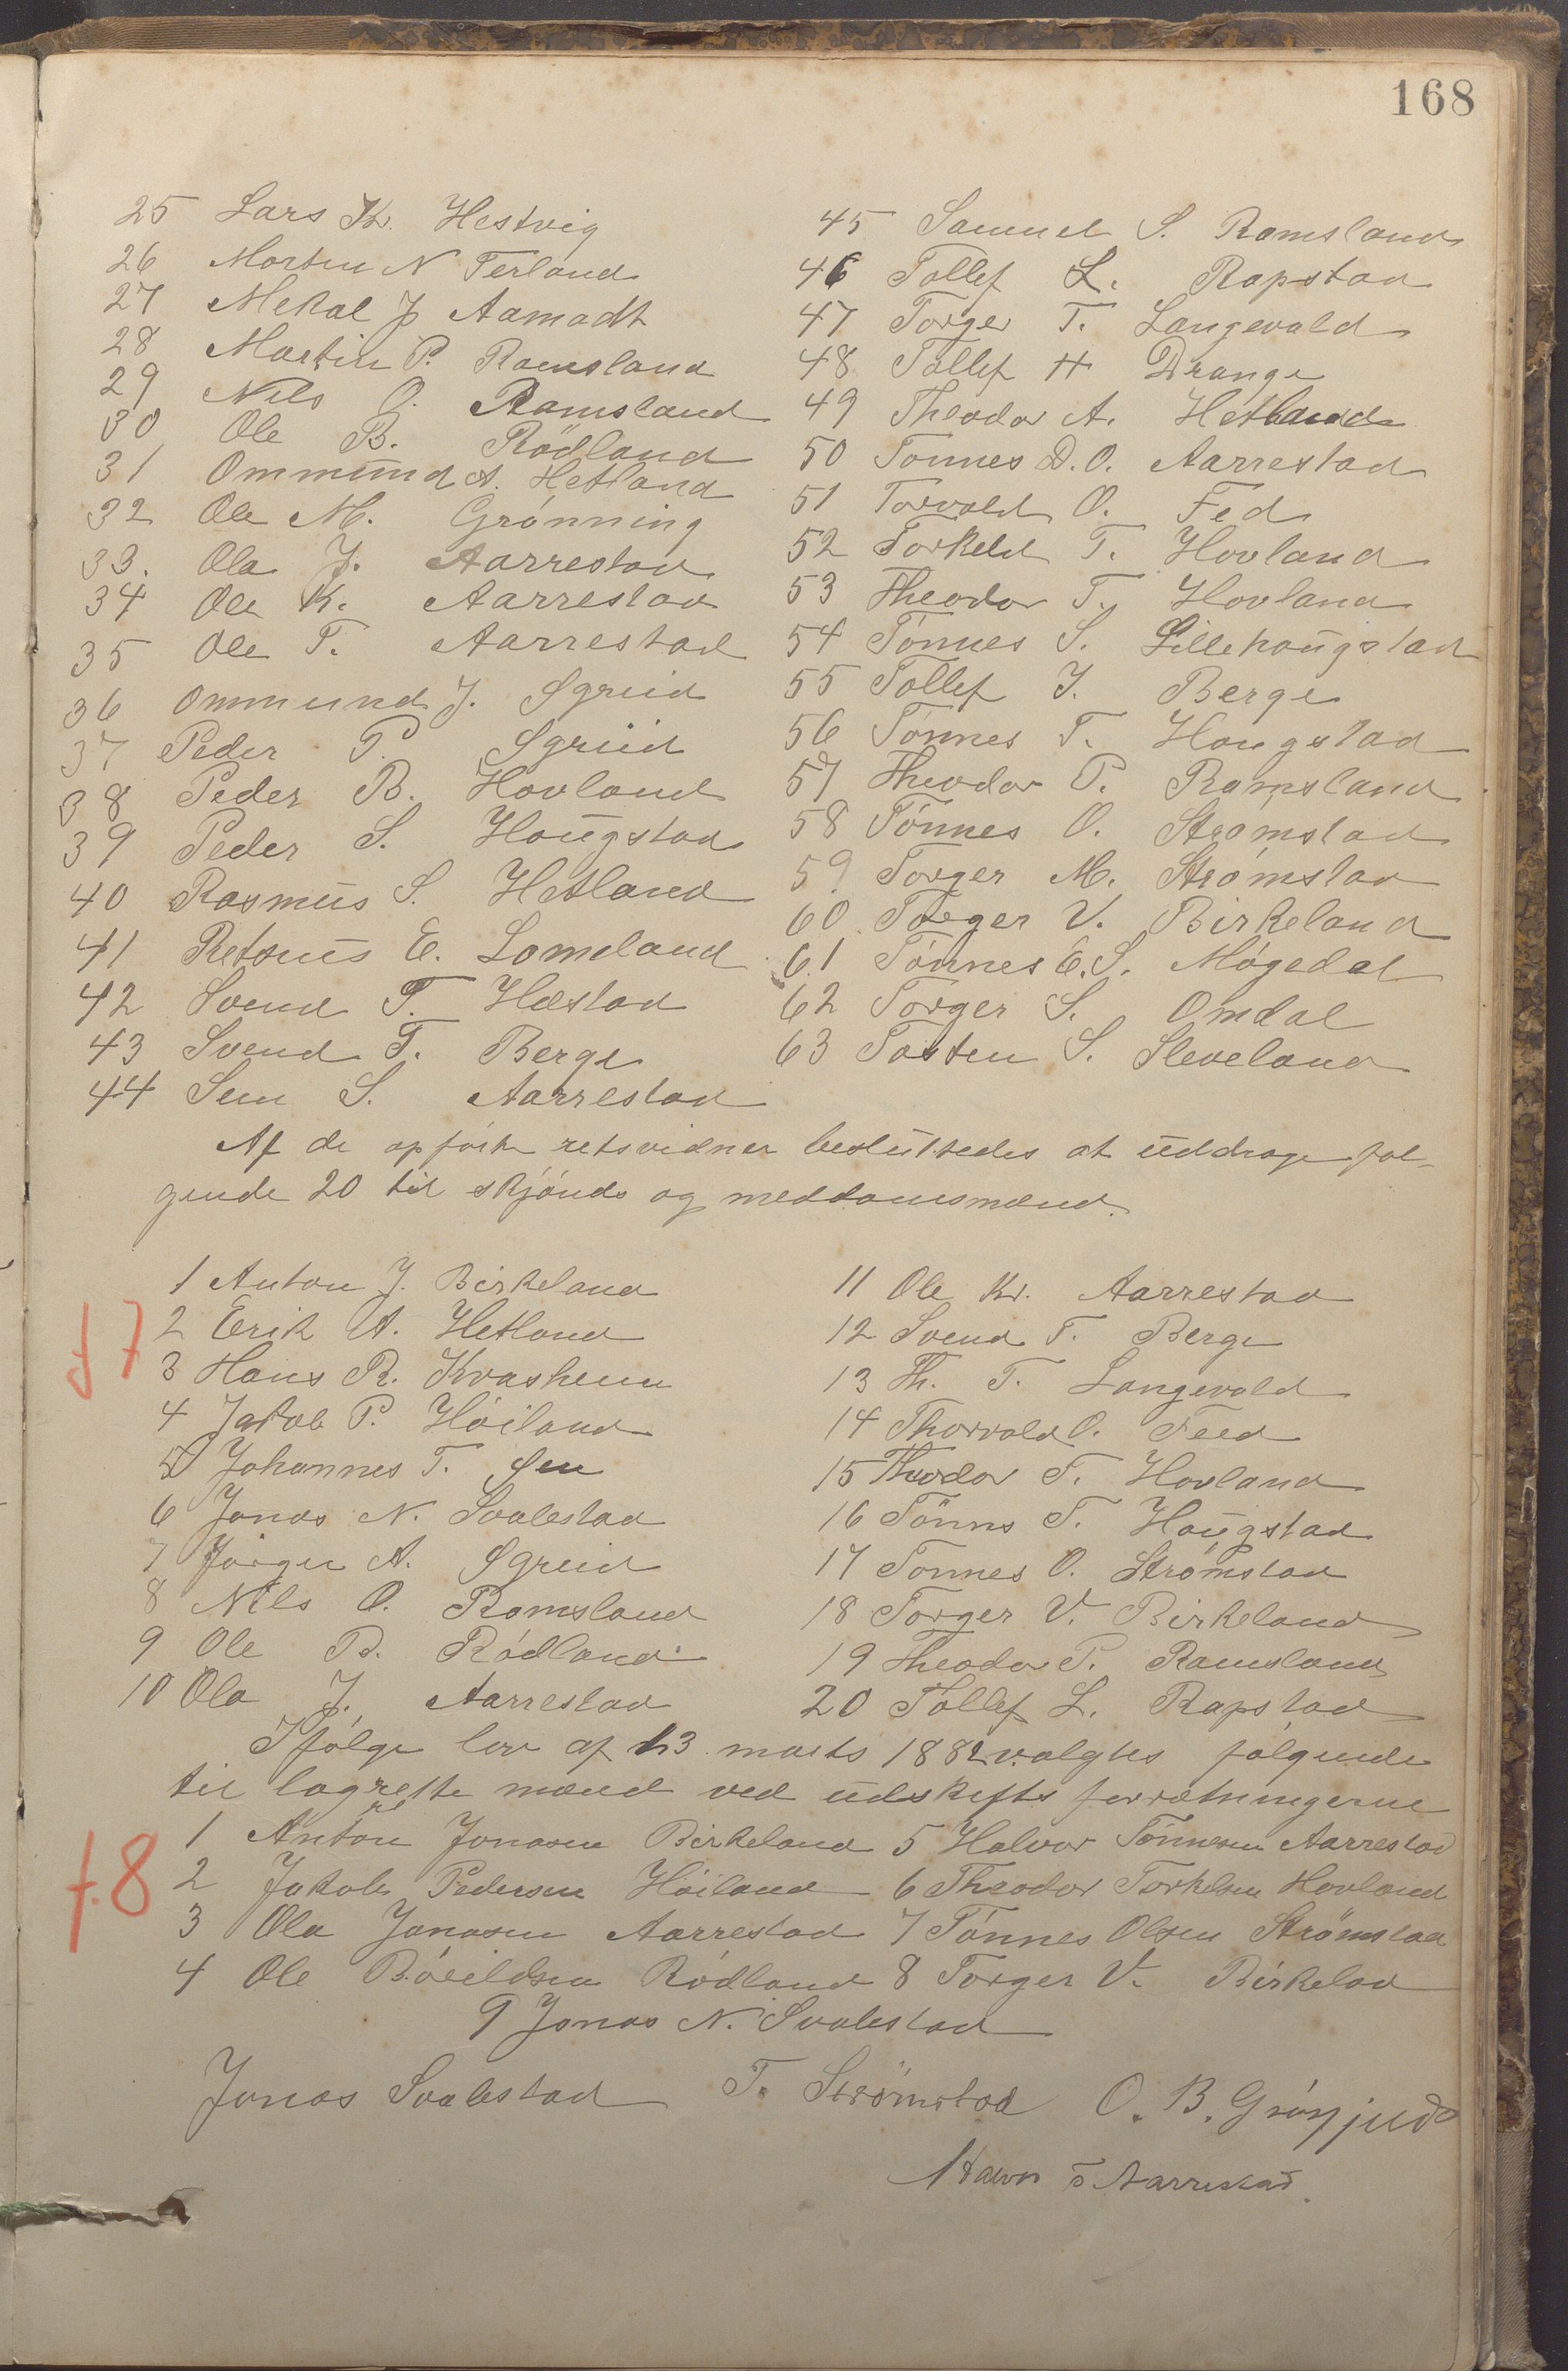 168
25 Lars Kr. Hestvig
26 Morten N Terland
27 Mekal J Aamodt
28 Martin P. Ramsland
29 Nils O. Ramsland
30 Ole B. Rödland
31 Ommund A. Hetland
32 Ole M. Grønning
33. Ola J. Aarrestad
34 Ole K. Aarrestad
35 Ole T. Aarrestad
36 Ommund J. Øgreid
37 Peder P. Øgreid
38 Peder B. Hovland
39 Peder S. Hougstad
40 Rasmus S. Hetland
41 Retsius E. Lomeland
42 Svend T. Hæstad
43 Svend T. Berge
44 Sem S. Aarrestad
45 Samuel S. Ramsland
46 Tollef L. Rapstad
47 Torger T. Langevald
48 Tollef H Drange
49 Theodor A. Hetland
50 Tønnes D. O. Aarrestad
51 Torvald O. Fed
52 Torkeld T. Hovland
53 Theodor T. Hovland
54 Tønnes S. Lillehougstad
55 Tollef J. Berge
56 Tønnes T. Hougstad
57 Theodor P. Ramsland
58 Tønnes O. Strømstad
59 Torger M. Strømstad
60 Torger V. Birkeland
61 Tønnes E. S. Møgedal
62 Torger S. Omdal
63 Tosten S. Sleveland
Af de opførte retsvidner besluttedes at uddrage føl-
gende 20 til skjønds og meddomsmænd.
f 7
1 Anton J. Birkeland
2 Erik A. Hetland
3 Hans R. Kvashem
4 Jakob P. Høiland
5 Johannes T. Øen
6 Jonas N. Svalestad
7 Jørgen A. Øgreid
8 Nils O. Ramsland
9 Ole B. Rødland
10 Ola J. Aarrestad
11 Ole Kr. Aarrestad
12 Svend T. Berge
13 Th. T. Langevald
14 Thorvald O. Feed
15 Theodor T. Hovland
16 Tönns T. Hougstad
17 Tønnes O. Strømstad
18 Torger V. Birkeland
19 Theodor P. Ramsland
20 Tollef L. Rapstad
Ifølge lov af 13 marts 1882 valgtes følgende
til lagrette mænd ved udskifts forretningerne
f. 8
1 Anton Jonasen Birkeland 5 Halvor Tønnesen Aarrestad
2 Jakob Pedersen Høiland 6 Theodor Torkelsen Hovland
3 Ola Jonasen Aarrestad 7 Tønnes Olsen Strömstad
4 Ole Bóeildsen Rødland 8 Torger V. Birkelad
9 Jonas N. Svalestad
Jonas Svalestad T. Strømstad O. B.
Halvor T Aarrestad.